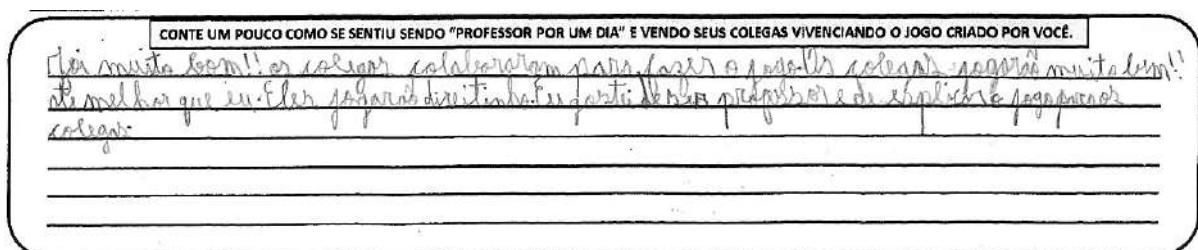 CONTE UM POUCO COMO SE SENTIU SENDO "PROFESSOR POR UM DIA" E VENDO SEUS COLEGAS VIVENCIANDO O JOGO CRIADO POR VOCÊ.
Foi muito bom!! os colegas colaboraram para fazer o jogo. Os colegas jogarão muito bem!!
até melhor que eu. Eles jogarão direitinho. Eu gostei de ser professor e de explicar o jogo para os
colegas.